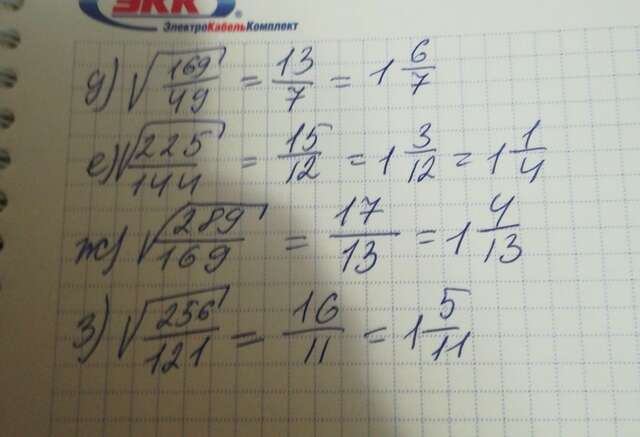 ЭКК
ЭлектроКабельКомплект
д) √(169/49) = 13/7 = 1 6/7
е) √(225/144) = 15/12 = 1 3/12 = 1 1/4
ж) √(289/169) = 17/13 = 1 4/13
з) √(256/121) = 16/11 = 1 5/11